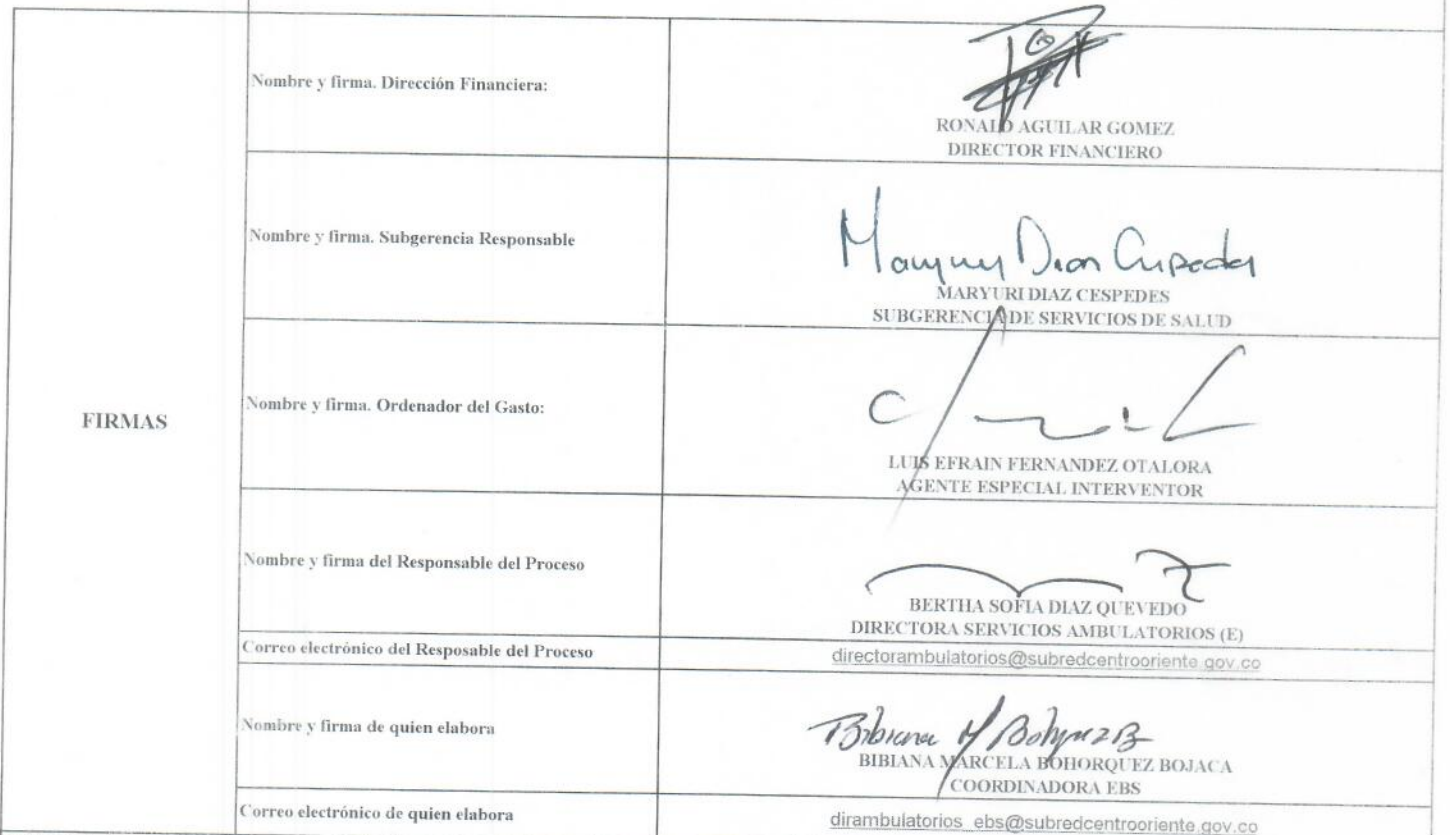 Nombre y firma. Dirección Financiera:
RONALD AGUILAR GOMEZ
DIRECTOR FINANCIERO
Nombre y firma. Subgerencia Responsable
MARYURI DIAZ CESPEDES
SUBGERENCIA DE SERVICIOS DE SALUD
FIRMAS
Nombre y firma. Ordenador del Gasto:
LUIS EFRAIN FERNANDEZ OTALORA
AGENTE ESPECIAL INTERVENTOR
Nombre y firma del Responsable del Proceso
BERTHA SOFIA DIAZ QUEVEDO
DIRECTORA SERVICIOS AMBULATORIOS (E)
Correo electrónico del Resposable del Proceso
directorambulatorios@subredcentrooriente.gov.co
Nombre y firma de quien elabora
BIBIANA MARCELA BOHORQUEZ BOJACA
COORDINADORA EBS
Correo electrónico de quien elabora
dirambulatorios_ebs@subredcentrooriente.gov.co